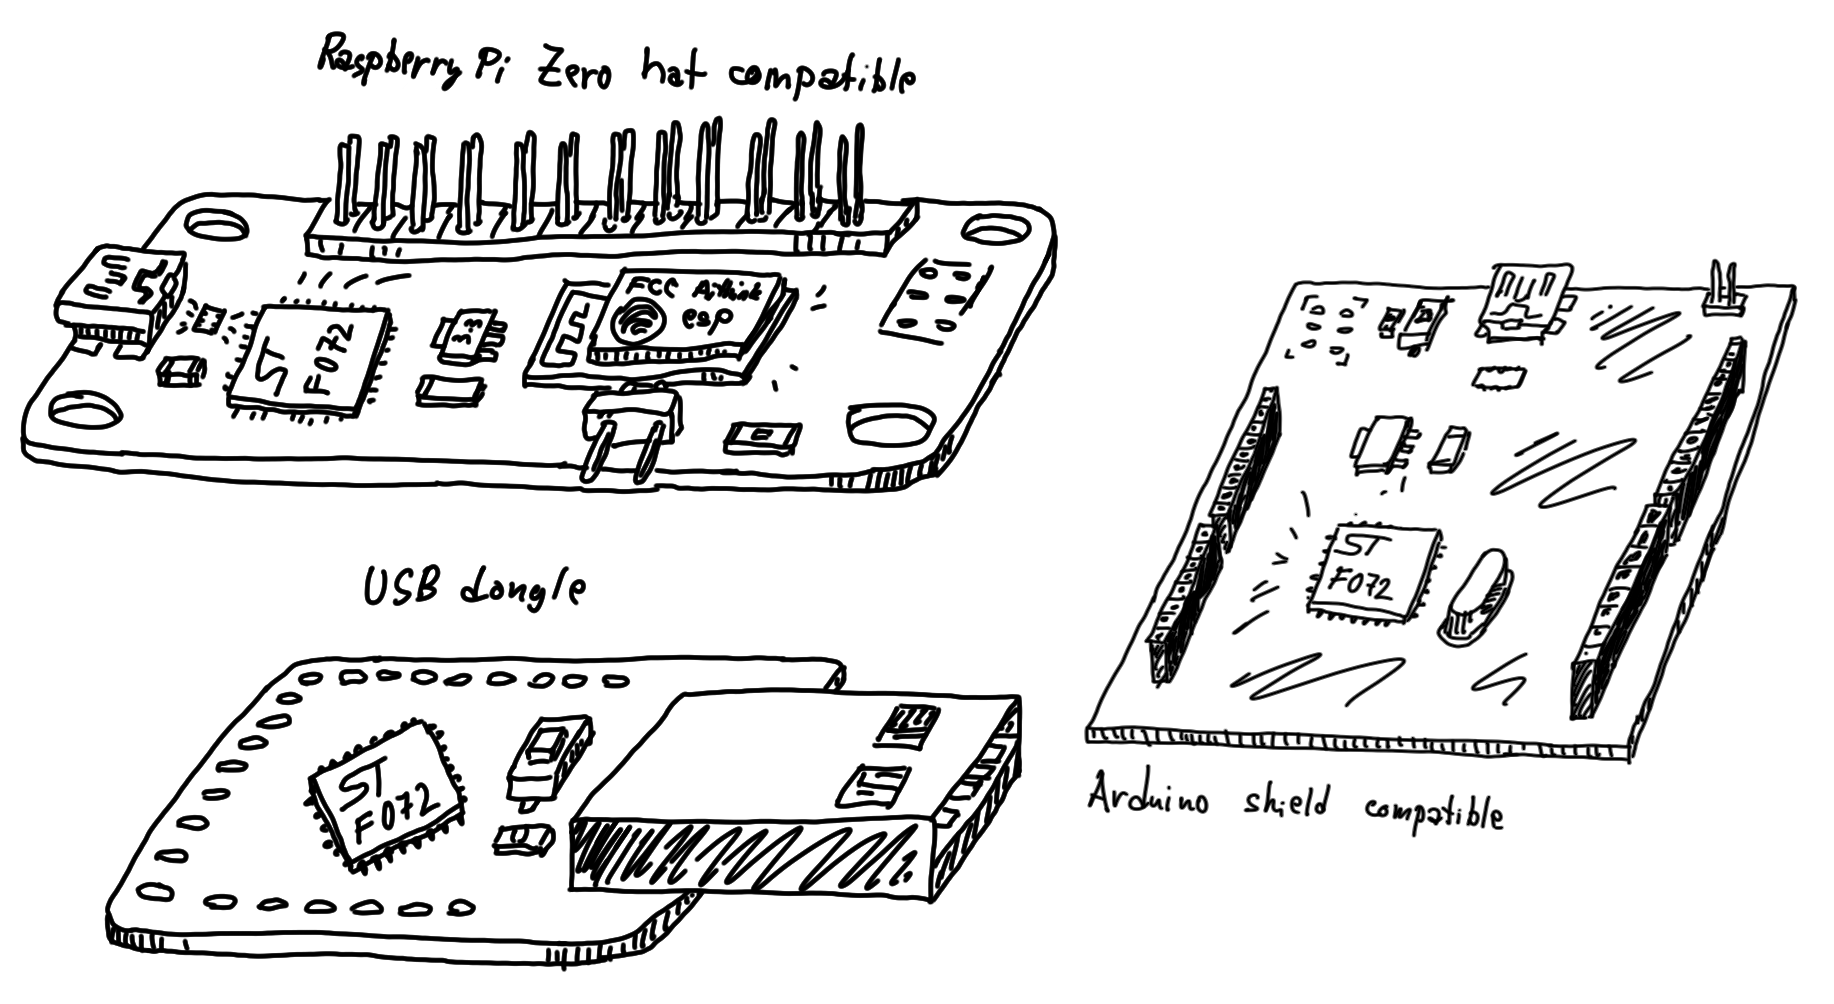 Raspberry Pi Zero hat compatible
FCC AiThink
esp
ST
F072
33
USB dongle
ST
F072
ST
F072
Arduino shield compatible